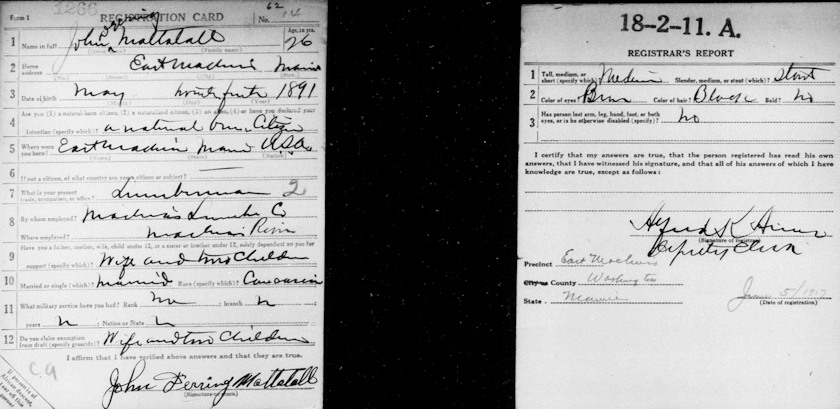 Form 1
1266
REGISTRATION CARD
62
No. 14
1
Name in full
John Ferring Mattatall
(Given name)
(Family name)
Age, in yrs.
26
2
Home address
East Machias
Maine
3
Date of birth
May
1891
(Month)
(Day)
(Year)
4
Are you (1) a natural-born citizen, (2) a naturalized citizen, (3) an alien, (4) or have you declared your
intention (specify which)?
a natural born Citizen
5
Where were you born?
East Machias Maine U.S.A.
(Town)
(State)
(Nation)
6
If not a citizen, of what country are you a citizen or subject?
7
What is your present trade, occupation, or office?
Lumberman
2
8
By whom employed?
Machias Lumber Co
Where employed?
Machias River
9
Have you a father, mother, wife, child under 12, or a sister or brother under 12, solely dependent on you for
support (specify which)?
Wife and two Children
10
Married or single (which)?
Married
Race (specify which)?
Caucasian
11
What military service have you had? Rank
no
; branch
; years
; Nation or State
12
Do you claim exemption from draft (specify grounds)?
Wife and two Children
I affirm that I have verified above answers and that they are true.
John Ferring Mattatall
(Signature or mark)
If person is of African descent,
18-2-11. A.
REGISTRAR'S REPORT
1
Tall, medium, or short (specify which)?
Medium
Slender, medium, or stout (which)?
Stout
2
Color of eyes?
Brown
Color of hair?
Black
Bald?
No
3
Has person lost arm, leg, hand, foot, or both eyes, or is he otherwise disabled (specify)?
No
I certify that my answers are true, that the person registered has read his own
answers, that I have witnessed his signature, and that all of his answers of which I
have knowledge are true, except as follows:
Alfred K
(Signature of registrar)
Deputy Clerk
Precinct
East Machias
City or County
Washington
State
Maine
June 5/1917
(Date of registration)